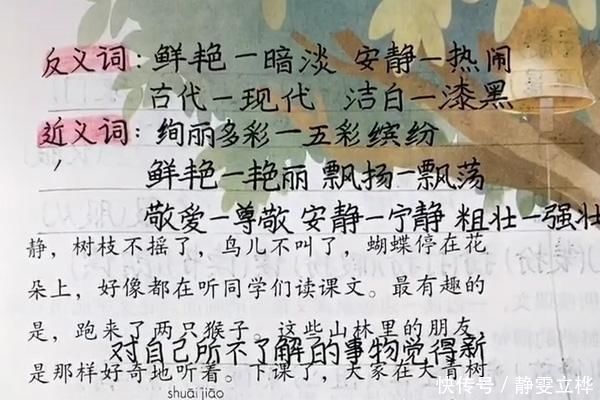 反义词:鲜艳—暗淡 安静—热闹
古代—现代 洁白—漆黑
近义词:绚丽多彩—五彩缤纷
鲜艳—艳丽 飘扬—飘荡
敬爱—尊敬 安静—宁静 粗壮—强壮
静，树枝不摇了，鸟儿不叫了，蝴蝶停在花
朵上，好像都在听同学们读课文。最有趣的
是，跑来了两只猴子。这些山林里的朋友，
对自己所不了解的事物觉得新
是那样好奇地听着。下课了，大家在大青树
shuāi jiāo
快传号 / 静雯立桦